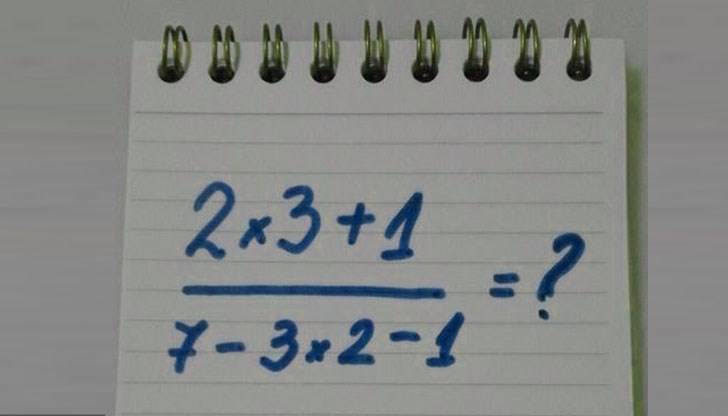 2×3+1
= ?
7-3×2-1